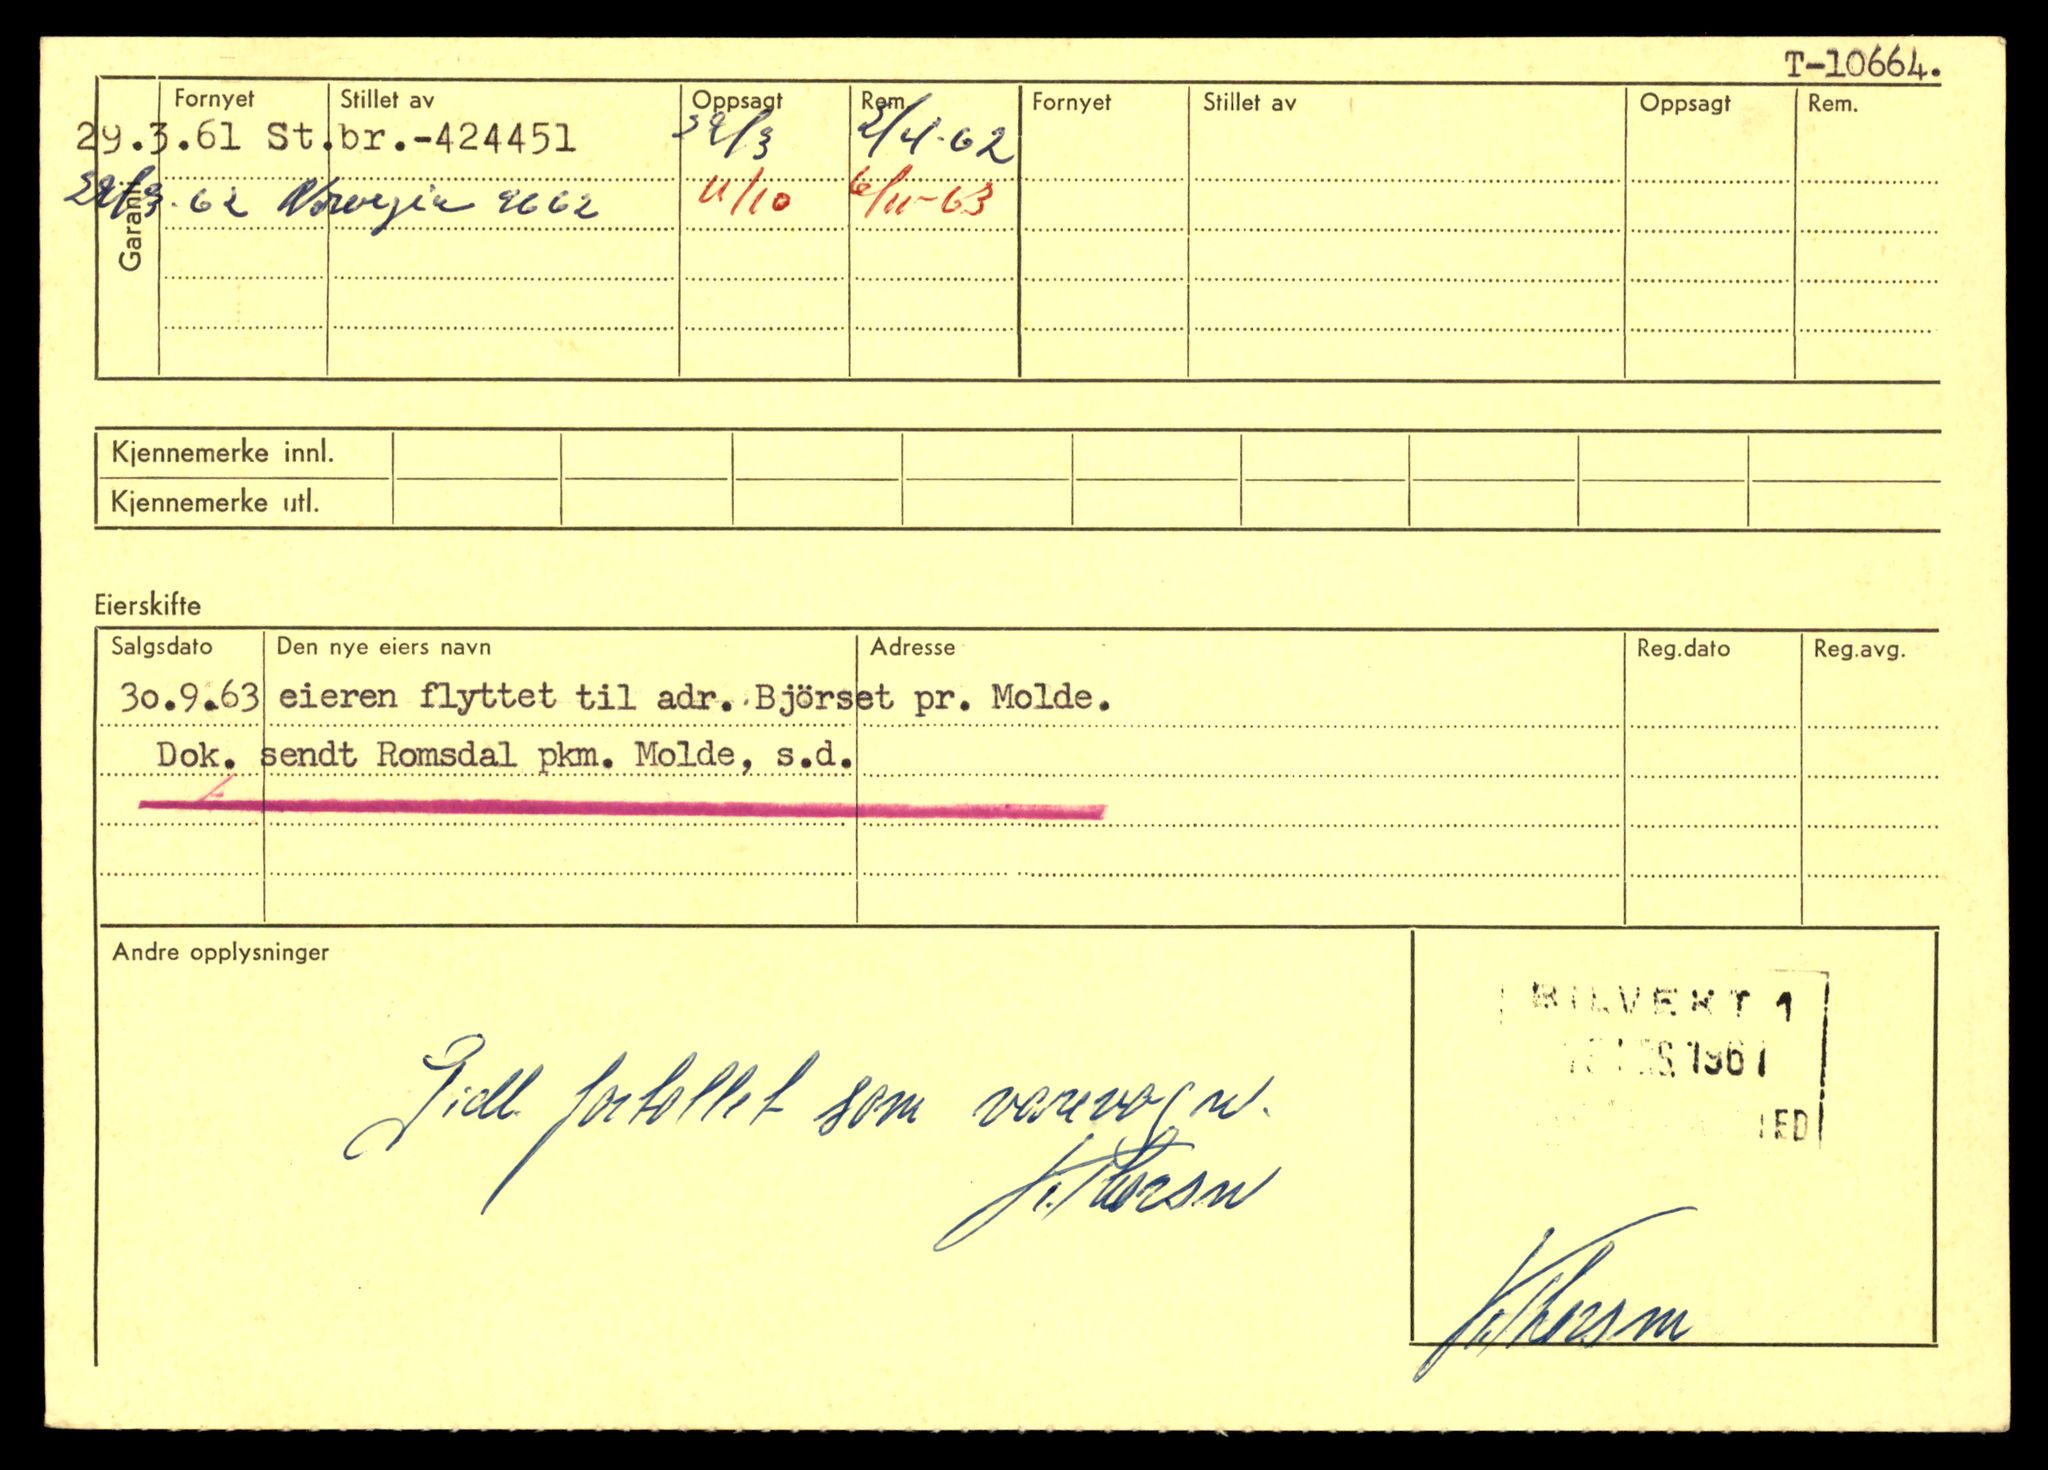 T-10664.
Garanti Fornyet Stillet av Oppsagt Rem. Fornyet Stillet av Oppsagt Rem.
29.3.61 St.br.-424451 29/3 2/4-62
29/3-62 Norvegia 2662 11/10 6/11-63
Kjennemerke innl.
Kjennemerke utl.
Eierskifte
Salgsdato Den nye eiers navn Adresse Reg.dato Reg.avg.
30.9.63 eieren flyttet til adr. Björset pr. Molde.
Dok. sendt Romsdal pkm. Molde, s.d.
Andre opplysninger
BILVERT 1
1961
Sidl. fortollet som varevogn.